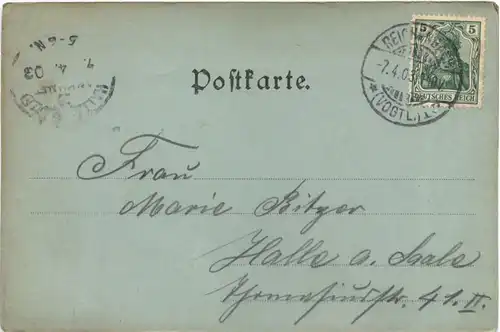 5-6 N.
7. 4. 03
Postkarte.
5 5
DEUTSCHES REICH
-7.4.03
* (VOGTL.)
Frau
Marie Bitzer
Halle a. Saale
Thomasiusstr. 41. II.